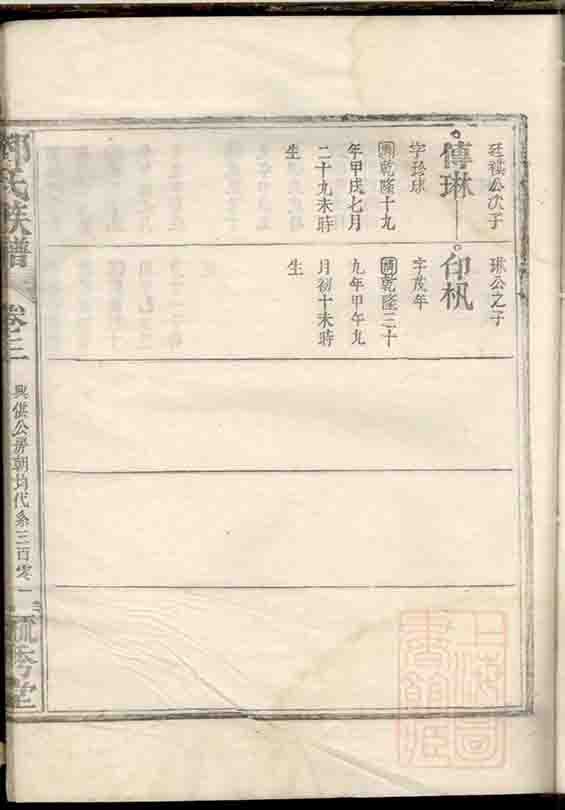 廷祺公次子
傳琳
字珍球
清乾隆十九
年甲戌七月
二十九未時
生
琳公之子
印枫
字茂年
清乾隆三十
九年甲午九
月初十未時
生
氏族譜
卷三
興供公房朝均代系三百零一
毓秀堂
上海圖書館藏